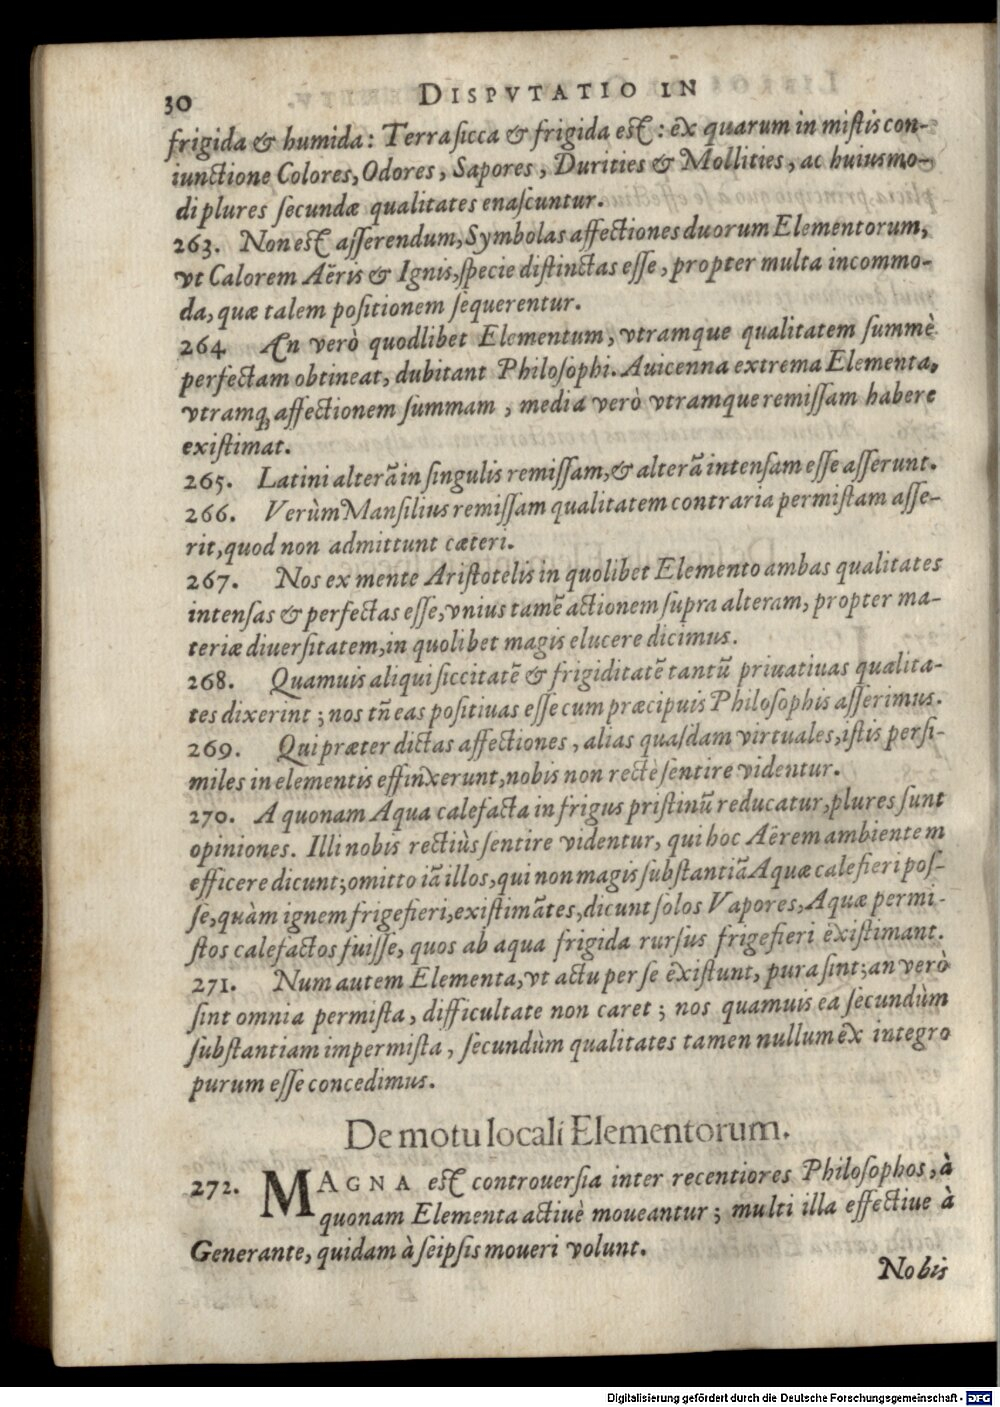 30 DISPVTATIO IN
frigida & humida: Terra sicca & frigida est: ex quarum in mistis con-
iunctione Colores, Odores, Sapores, Durities & Mollities, ac huiusmo-
di plures secundæ qualitates enascuntur.
263. Non est asserendum, Symbolas affectiones duorum Elementorum,
vt Calorem Aëris & Ignis, specie distinctas esse, propter multa incommo-
da, quæ talem positionem sequerentur.
264 An verò quodlibet Elementum, vtramque qualitatem summè
perfectam obtineat, dubitant Philosophi. Auicenna extrema Elementa,
vtramq; affectionem summam, media verò vtramque remissam habere
existimat.
265. Latini alterã in singulis remissam, & alterã intensam esse asserunt.
266. Verùm Mansilius remissam qualitatem contraria permistam asse-
rit, quod non admittunt cæteri.
267. Nos ex mente Aristotelis in quolibet Elemento ambas qualitates
intensas & perfectas esse, vnius tamẽ actionem supra alteram, propter ma-
teriæ diuersitatem, in quolibet magis elucere dicimus.
268. Quamuis aliqui siccitatẽ & frigiditatẽ tantũ priuatiuas qualita-
tes dixerint; nos tñ eas positiuas esse cum præcipuis Philosophis asserimus.
269. Qui præter dictas affectiones, alias quasdam virtuales, istis persi-
miles in elementis effinxerunt, nobis non rectè sentire videntur.
270. A quonam Aqua calefacta in frigus pristinũ reducatur, plures sunt
opiniones. Illi nobis rectiùs sentire videntur, qui hoc Aërem ambientem
efficere dicunt; omitto iã illos, qui non magis substantiã Aquæ calefieri pos-
se, quàm ignem frigefieri, existimãtes, dicunt solos Vapores, Aquæ permi-
stos calefactos fuisse, quos ab aqua frigida rursus frigefieri existimant.
271. Num autem Elementa, vt actu per se existunt, pura sint; an verò
sint omnia permista, difficultate non caret; nos quamuis ea secundùm
substantiam impermista, secundùm qualitates tamen nullum ex integro
purum esse concedimus.
De motu locali Elementorum.
272. MAGNA est controuersia inter recentiores Philosophos, à
quonam Elementa actiuè moueantur; multi illa effectiue à
Generante, quidam à seipsis moueri volunt.
Nobis
Digitalisierung gefördert durch die Deutsche Forschungsgemeinschaft - DFG